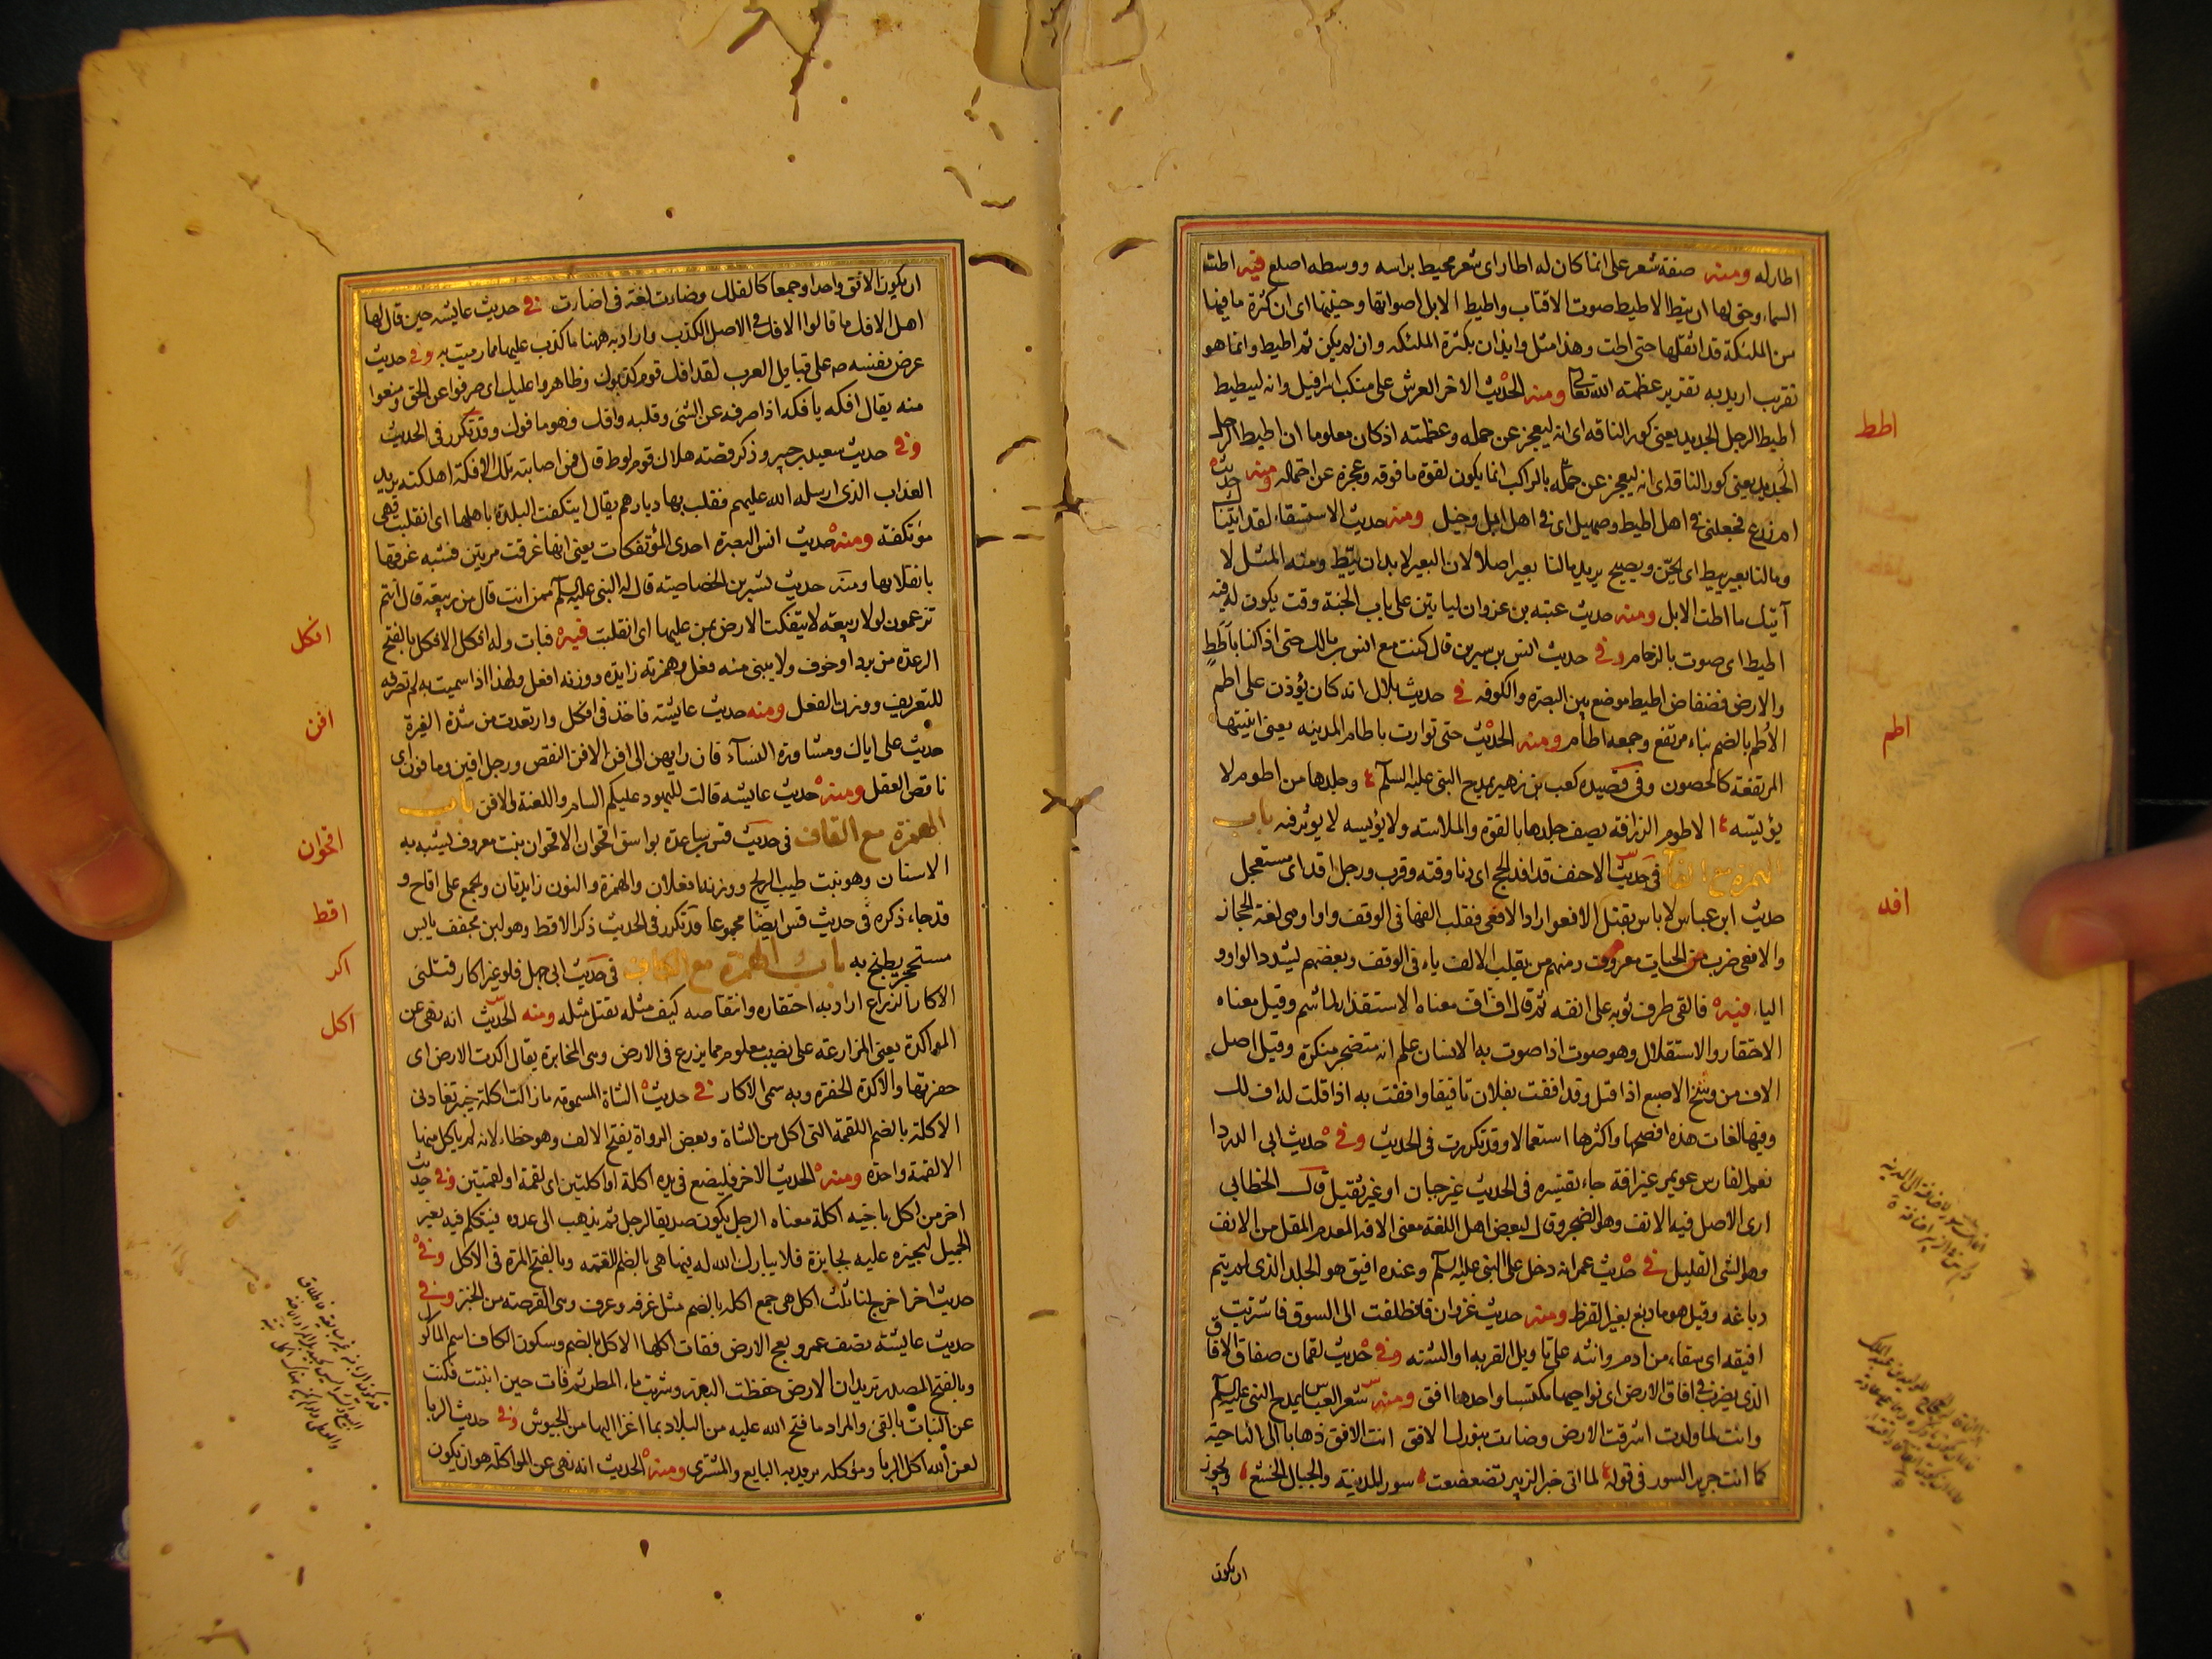 اطار له ومنه صفة شعر علي انما كان له اطار اى شعر محيط براسه ووسطه اصلع فيه اطت
السماء وحق لها ان تيط الاطيط صوت الاقتاب واطيط الابل اصواتها وحنينها اى ان كثرة ما فيها
من الملئكة قد اثقلها حتى اطت وهذا مثل وايذان بكثرة الملئكه وان لم يكن ثم اطيط وانما هو
تقريب اريد به تقرير عظمته الله تعا ومنه الحديث الاخر العرش على منكب اسرافيل وانه ليیطيط
اطيط الرحل الجديد يعنى كور الناقه اى انه ليعجز عن حمله وعظمته اذ كان معلوما ان اطيط الرحل
الجديد يعنى كور الناقه اى انه ليعجز عن حمله بالراكب انما يكون لقوة ما فوقه وعجزه عن احتماله ومنه حديث
ام زرع فجعلنى فى اهل اطيط وصهيل اى فى اهل ابل وخيل ومنه حديث الاستسقاء لقد اتيناك
وما لنا بعير ييط اى يحن ويصيح يريد ما لنا بعير اصلا لان البعير لابد ان ييط ومنه المثل لا
آتيك ما اطت الابل ومنه حديث عتبه بن غزوان لياتين على باب الجنة وقت يكون له فيه
اطيط اى صوت بالزحام وفى حديث انس بن سيرين قال كنت مع انس بن مالك حتى اذ اكنا باطط
والارض فضفاض اطيط موضع بين البصرة والكوفه فى حديث بلال انه كان يؤذن على اطم
الاطم بالضم بناء مرتفع وجمعه اطام ومنه الحديث حتى توارت باطام المدينه يعنى ابنيتها
المرتفعة كالحصون وفى قصيده كعب بن زهير يمدح النبى عليه السلم وجلدها من اطوم لا
يؤيسه الاطوم الزرافة يصف جلدها بالقوة والملاسته ولا يؤيسه لا يوثر فيه باب
الهمزة مع الفا فى حديث الاحنف قد افد الحج اى دنا وقته وقرب ورجل افد اى مستعجل
حديث ابن عباس لا باس بقتل الافعو اراد الافعى فقلب الفها فى الوقف واوا وهى لغة الحجاز
والافعى ضرب من الحيات معروف ومنهم من يقلب الالف ياء فى الوقف وبعضهم يشدد الواو و
الياء فيه فالقى طرف ثوبه على انفه ثم قال اف اف معناه الاستقذار لما شم وقيل معناه
الاحتقار والاستقلال وهو صوت اذا صوت به الانسان علم انه متضجر متكره وقيل اصل
الاف من وسخ الاصبع اذا فتل وقد اففت بفلان تافيفا واففت به اذا قلت له اف لك
وفيها لغات هذه افصحها واكثرها استعمالا وقد تكررت فى الحديث وفى حديث ابى الدردا
نعم الفارس عويمر غير افة جاء تفسيره فى الحديث غير جبان او غير ثقيل قال الخطابى
ارى الاصل فيه الافف وهو الضجر وقال بعض اهل اللغة معنى الافه المعدم المقل من الافف
وهو الشى القليل فى حديث عمر انه دخل على النبى عليه السلم وعنده افيق هو الجلد الذى لم يتم
دباغه وقيل هو ما دبغ بغير القرظ ومنه حديث غزوان فانطلقت الى السوق فاشتريت
افيقه اى سقاء من ادم وانثه على تاويل القربه او الشنه وفى حديث لقمان صفاق افاق
الذى يضرب فى افاق الارض اى نواحيها مكتسبا واحدها افق ومنه شعر العباس يمدح النبى عليه السلم
وانت لما ولدت اشرقت الارض وضاءت بنورك الافق انت الافق ذهابا الى الناحية
كما انت جرير السور فى قوله لما اتى خبر الزبير تضعضعت سور المدينة والجبال الخشع ويجوز
ان يكون
اطط
اطم
افد
ان يكون الافق واحدا وجمعا كالفلك وضاءت لغة فى اضاءت وفى حديث عايشه حين قال لها
اهل الافك ما قالوا الافك فى الاصل الكذب واراد به ههنا ما كذب عليها مما رميت به وفى حديث
عرض نفسه ص على قبايل العرب لقد افك قوم كذبوك وظاهروا عليك اى صرفوا عن الحق ومنعوا
منه يقال افكه يافكه اذا صرفه عن الشئ وقلبه وافك وهو مافوك وقد تكرر فى الحديث
وفى حديث سعيد بن جبير وذكر قصة هلاك قوم لوط قال فمن اصابته تلك الافكة اهلكته يريد
العذاب الذى ارسله الله عليهم فقلب بها ديارهم يقال ايتكفت البلدة باهلها اى انقلبت فهى
مؤتكفة ومنه حديث انس البصرة احدى المؤتفكات يعنى انها غرقت مرتين فشبه غرقها
بانقلابها ومنه حديث بشير بن الخصاصية قال له النبى عليه السلم ممن انت قال من ربيعة قال انتم
تزعمون لولا ربيعة لايتفكت الارض بمن عليها اى انقلبت فيه فبات وله افكل الافكل بالفتح
الرعدة من برد او خوف ولا يبنى منه فعل وهمزته زايدة ووزنه افعل ولهذا اذا سميت به لم تصرفه
للتعريف ووزن الفعل ومنه حديث عايشة فاخذنى افكل وارتعدت من شدة الغيرة
حديث على اياك ومشاورة النساء فان رايهن الى افن الافن النقص ورجل افين ومافون اى
ناقص العقل ومنه حديث عايشه قالت لليهود عليكم السام واللعنة والافن باب
الهمزة مع القاف فى حديث قس بن ساعدة بواسق اقحوان الاقحوان نبت معروف يشبه به
الاسنان وهو نبت طيب الريح ووزنه افعلان والهمزة والنون زايدتان ويجمع على اقاح و
قد جاء ذكره فى حديث قس ايضا مجموعا قد تكرر فى الحديث ذكر الاقط وهو لبن مجفف يابس
مستحجر يطبخ به باب الهمزة مع الكاف فى حديث ابى جهل فلو غير اكار قتلنى
الاكار الزراع اراد به احتقاره وانتقاصه كيف مثله يقتل مثله ومنه الحديث انه نهى عن
المواكرة يعنى المزارعة على نصيب معلوم مما يزرع فى الارض وهى المخابرة يقال اكرت الارض اى
حفرتها والاكرة الحفرة وبه سمى الاكار فى حديث الشاة المسمومه ما زالت اكلة خيبر تعادنى
الاكلة بالضم اللقمة التى اكل من الشاة وبعض الرواة يفتح الالف وهو خطاء لانه لم ياكل منها
الا لقمة واحدة ومنه الحديث الاخر فليضع فى يده اكلة او اكلتين اى لقمة او لقمتين وفى حديث
اخر من اكل باخيه اكلة معناه الرجل يكون صديقا لرجل ثم يذهب الى عدوه فيتكلم فيه بغير
الجميل ليجيزه عليه بجايزة فلا يبارك الله له فيها هى بالضم اللقمه وبالفتح المرة فى الاكل وفى
حديث اخر اخرج لنا ثلث اكل هى جمع اكله بالضم مثل غرفه وغرف وهى القرصة من الخبز وفى
حديث عايشة تصف عمر وبعج الارض فقاءت اكلها الاكل بالضم وسكون الكاف اسم الماكول
وبالفتح المصدر تريد ان الارض حفظت البذر وشربت ماء المطر ثم قاءت حين انبتت فكنت
عن النبات بالقئ والمراد ما فتح الله عليه من البلاد بما اغزا اليها من الجيوش وفى حديث الربا
لعن الله اكل الربا ومؤكله يريد به البايع والمشترى ومنه الحديث انه نهى عن المواكلة هو ان يكون
افكل
افن
اقحوان
اقط
اكر
اكل